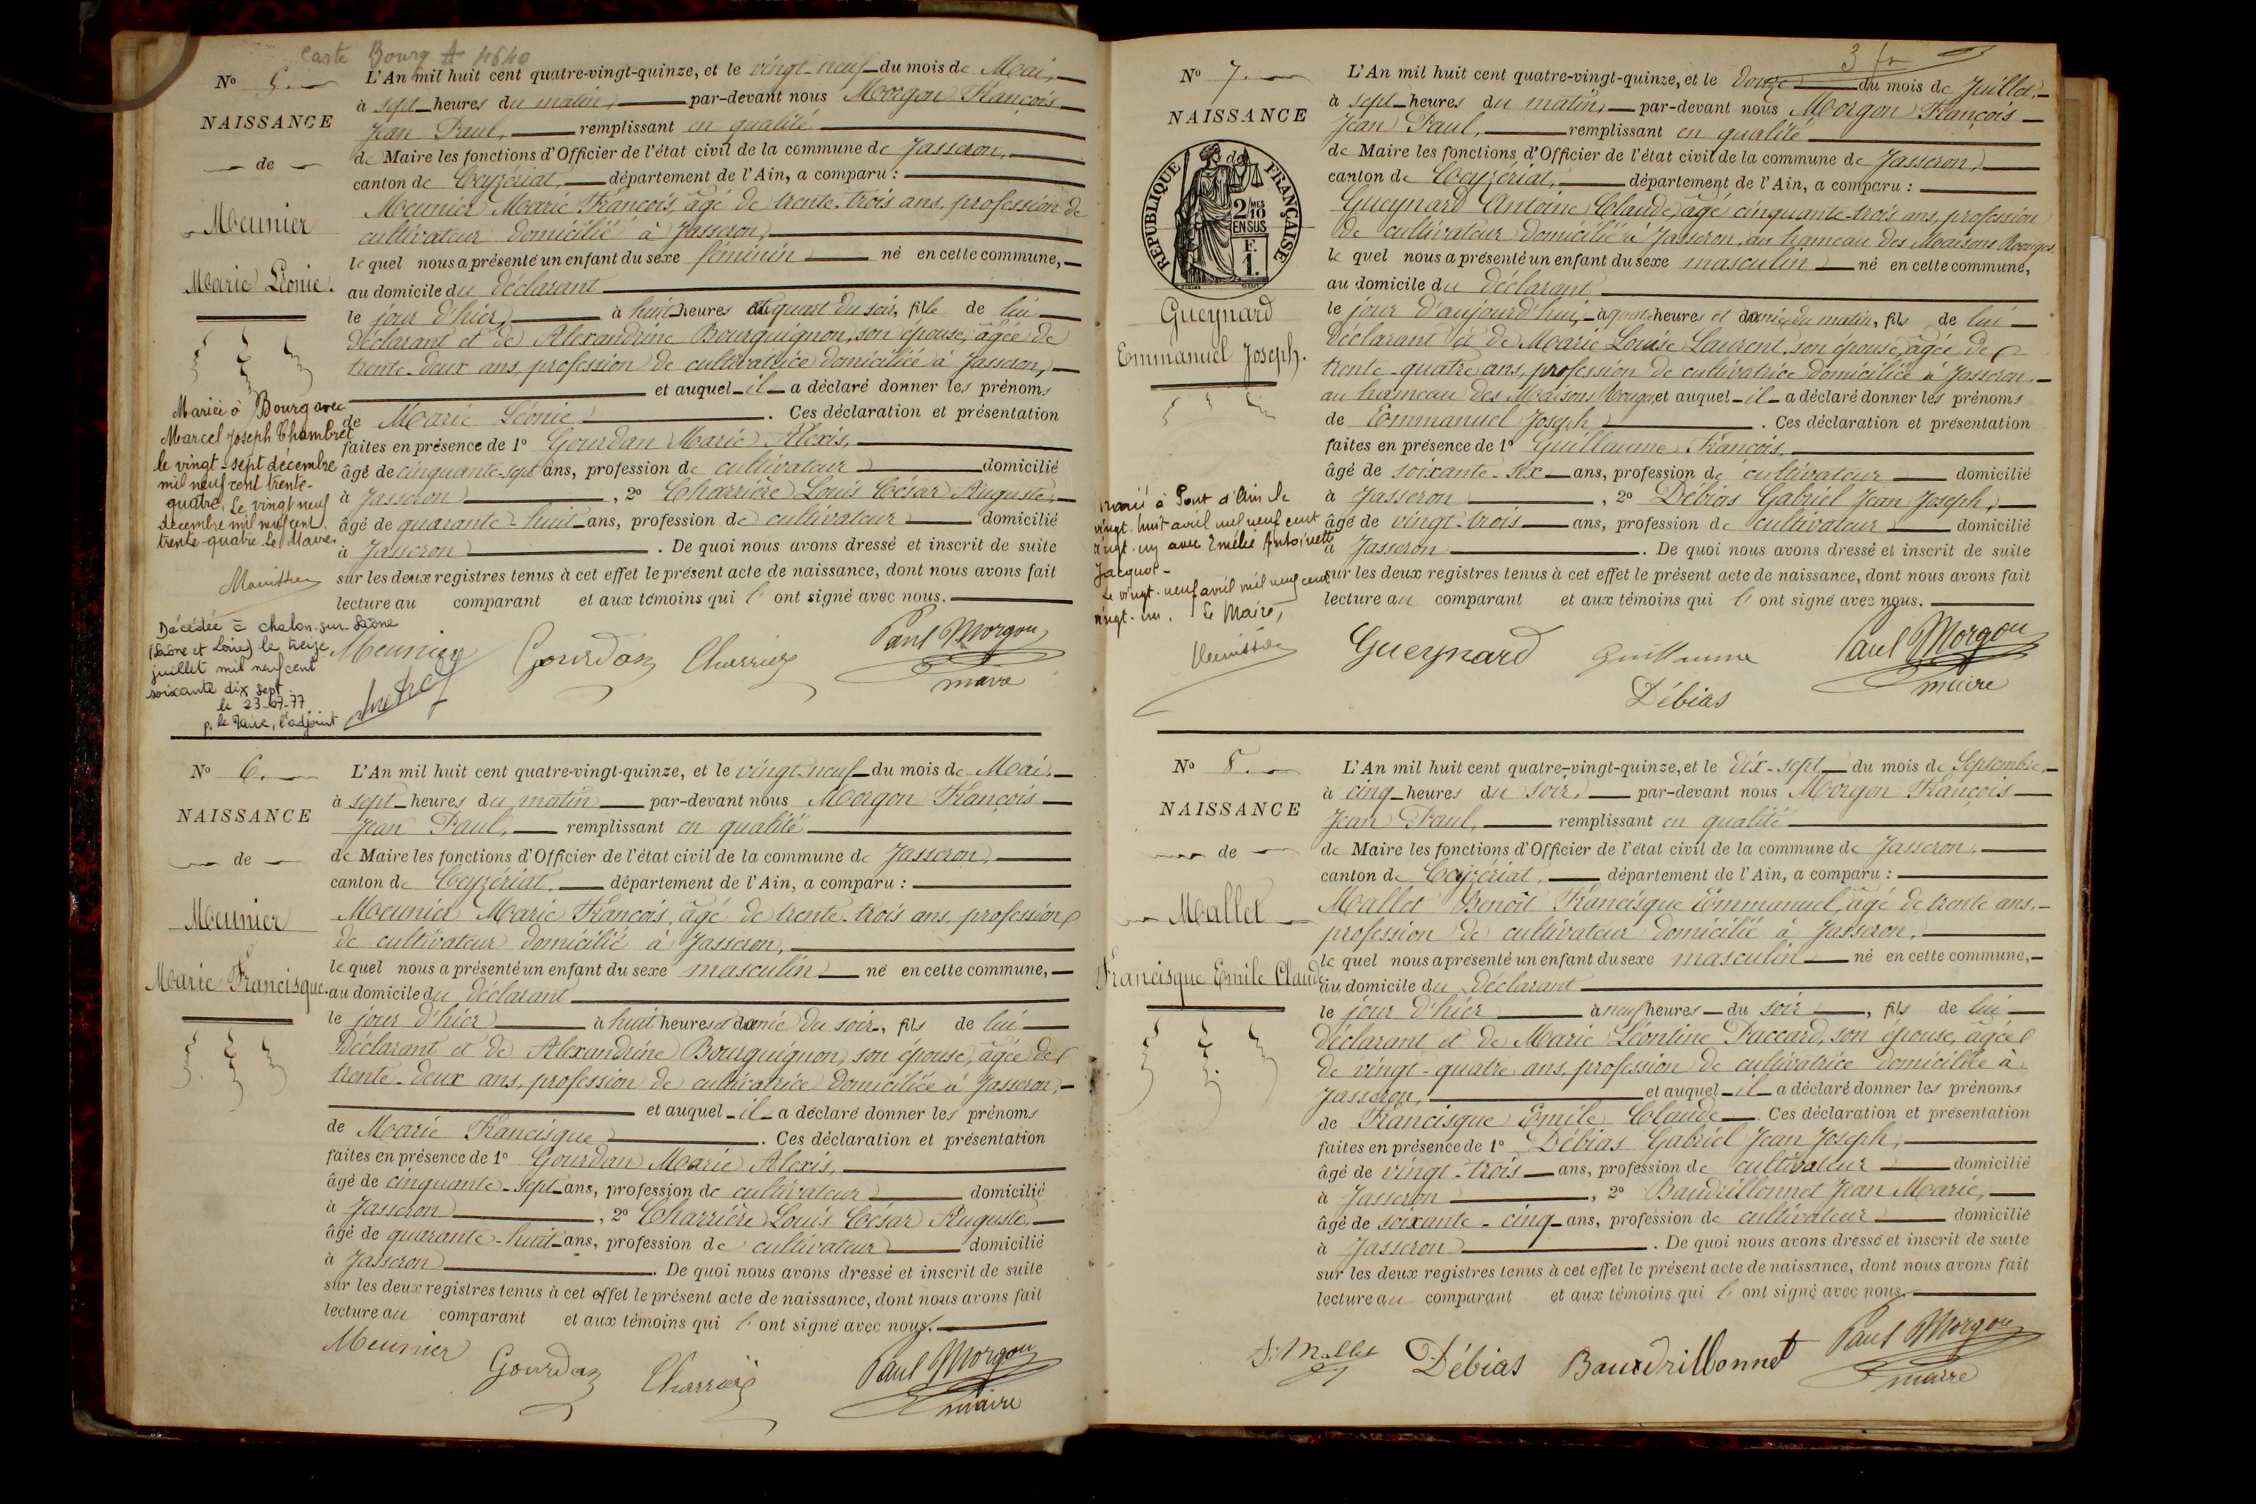 Carte Bourg A 4640
N° 5.
NAISSANCE
de
Meunier
Marie Léonie.
L'An mil huit cent quatre-vingt-quinze, et le vingt-neuf du mois de Mai,
à sept heures du matin, par-devant nous Morgon François
Jean Paul, remplissant en qualité
de Maire les fonctions d'Officier de l'état civil de la commune de Jasseron,
canton de Ceyzériat, département de l'Ain, a comparu :
Meunier Marie François, âgé de trente-trois ans, profession de
cultivateur domicilié à Jasseron,
lequel nous a présenté un enfant du sexe féminin né en cette commune,
au domicile du déclarant
le jour d'hier, à huit heures et quart du soir, fille de lui
déclarant et de Alexandrine Bourguignon, son épouse, âgée de
trente-deux ans, profession de cultivatrice domiciliée à Jasseron,
et auquel il a déclaré donner les prénoms
de Marie Léonie. Ces déclaration et présentation
faites en présence de 1° Gourdan Marie Alexis,
âgé de cinquante-sept ans, profession de cultivateur domicilié
à Jasseron, 2° Charrière Louis César Auguste,
âgé de quarante-huit ans, profession de cultivateur domicilié
à Jasseron. De quoi nous avons dressé et inscrit de suite
sur les deux registres tenus à cet effet le présent acte de naissance, dont nous avons fait
lecture au comparant et aux témoins qui l'ont signé avec nous.
Meunier Gourdan Charrière Paul Morgon
maire
Mariée à Bourg avec
Marcel Joseph Chambret
le vingt-sept décembre
mil neuf cent trente-
quatre. Le vingt neuf
décembre mil neuf cent
trente-quatre Le Maire.
Décédée à Chalon-sur-Saône
(Saône et Loire) le treize
juillet mil neuf cent
soixante dix sept
le 23-07-77
p. le Maire, l'adjoint
N° 6.
NAISSANCE
de
Meunier
Marie Francisque.
L'An mil huit cent quatre-vingt-quinze, et le vingt-neuf du mois de Mai,
à sept heures du matin par-devant nous Morgon François
Jean Paul, remplissant en qualité
de Maire les fonctions d'Officier de l'état civil de la commune de Jasseron,
canton de Ceyzériat, département de l'Ain, a comparu :
Meunier Marie François, âgé de trente-trois ans, profession
de cultivateur domicilié à Jasseron,
lequel nous a présenté un enfant du sexe masculin né en cette commune,
au domicile du déclarant
le jour d'hier à huit heures et demie du soir, fils de lui
déclarant et de Alexandrine Bourguignon, son épouse, âgée de
trente-deux ans, profession de cultivatrice domiciliée à Jasseron,
et auquel il a déclaré donner les prénoms
de Marie Francisque. Ces déclaration et présentation
faites en présence de 1° Gourdan Marie Alexis,
âgé de cinquante-sept ans, profession de cultivateur domicilié
à Jasseron, 2° Charrière Louis César Auguste,
âgé de quarante-huit ans, profession de cultivateur domicilié
à Jasseron. De quoi nous avons dressé et inscrit de suite
sur les deux registres tenus à cet effet le présent acte de naissance, dont nous avons fait
lecture au comparant et aux témoins qui l'ont signé avec nous.
Meunier Gourdan Charrière Paul Morgon
maire
3 fr
N° 7.
NAISSANCE
de
RÉPUBLIQUE FRANÇAISE
2/10MES
EN SUS
F.
1.
Gueynard
Emmanuel Joseph.
L'An mil huit cent quatre-vingt-quinze, et le douze du mois de Juillet,
à sept heures du matin, par-devant nous Morgon François
Jean Paul, remplissant en qualité
de Maire les fonctions d'Officier de l'état civil de la commune de Jasseron,
canton de Ceyzériat, département de l'Ain, a comparu :
Gueynard Antoine Claude, âgé cinquante-trois ans, profession
de cultivateur domicilié à Jasseron, au hameau des Maisons Rouges
lequel nous a présenté un enfant du sexe masculin né en cette commune,
au domicile du déclarant
le jour d'aujourd'hui, à quatre heures et demie du matin, fils de lui
déclarant et de Marie Louise Laurent, son épouse, âgée de
trente-quatre ans, profession de cultivatrice domiciliée à Jasseron,
au hameau des Maisons Rouges, et auquel il a déclaré donner les prénoms
de Emmanuel Joseph. Ces déclaration et présentation
faites en présence de 1° Guillaume François,
âgé de soixante-six ans, profession de cultivateur domicilié
à Jasseron, 2° Débias Gabriel Jean Joseph,
âgé de vingt-trois ans, profession de cultivateur domicilié
à Jasseron. De quoi nous avons dressé et inscrit de suite
sur les deux registres tenus à cet effet le présent acte de naissance, dont nous avons fait
lecture au comparant et aux témoins qui l'ont signé avec nous.
Gueynard Guillaume Paul Morgon
Débias maire
Marié à Pont d'Ain le
vingt-huit avril mil neuf cent
vingt-un avec Emélie Antoinette
Jacquot-
Le vingt-neuf avril mil neuf cent
vingt-un. Le Maire,
N° 8.
NAISSANCE
de
Mallet
Francisque Emile Claude
L'An mil huit cent quatre-vingt-quinze, et le dix-sept du mois de Septembre,
à cinq heures du soir, par-devant nous Morgon François
Jean Paul, remplissant en qualité
de Maire les fonctions d'Officier de l'état civil de la commune de Jasseron,
canton de Ceyzériat, département de l'Ain, a comparu :
Mallet Benoît Francisque Emmanuel, âgé de trente ans,
profession de cultivateur domicilié à Jasseron,
lequel nous a présenté un enfant du sexe masculin né en cette commune,
au domicile du déclarant
le jour d'hier à neuf heures du soir, fils de lui
déclarant et de Marie Léontine Paccard, son épouse, âgée
de vingt-quatre ans, profession de cultivatrice domiciliée à
Jasseron, et auquel il a déclaré donner les prénoms
de Francisque Emile Claude. Ces déclaration et présentation
faites en présence de 1° Débias Gabriel Jean Joseph,
âgé de vingt-trois ans, profession de cultivateur domicilié
à Jasseron, 2° Baudrillonnet Jean Marie,
âgé de soixante-cinq ans, profession de cultivateur domicilié
à Jasseron. De quoi nous avons dressé et inscrit de suite
sur les deux registres tenus à cet effet le présent acte de naissance, dont nous avons fait
lecture au comparant et aux témoins qui l'ont signé avec nous.
Mallet Débias Bauxdrillonnet Paul Morgon
maire